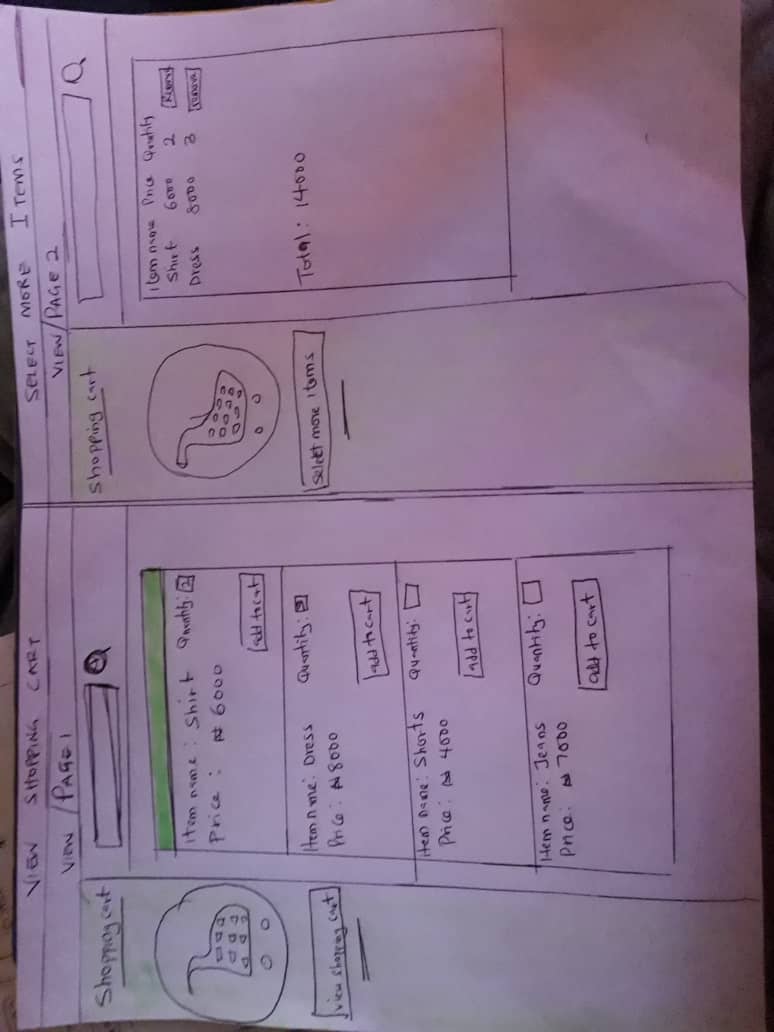 VIEW SHOPPING CART
VIEW / PAGE 1
Shopping cart
view shopping cart
Item name : Shirt Quantity: 2
Price : ₦ 6000
add to cart
Item name: Dress Quantity: 3
Price : ₦ 8000
add to cart
Item name: Shorts Quantity:
Price : ₦ 4000
add to cart
Item name: Jeans Quantity:
Price: ₦ 7000
add to cart
SELECT MORE ITEMS
VIEW/PAGE 2
Shopping cart
Select more items
Item name Price Quantity
Shirt 6000 2
Dress 8000 3
Total : 14000